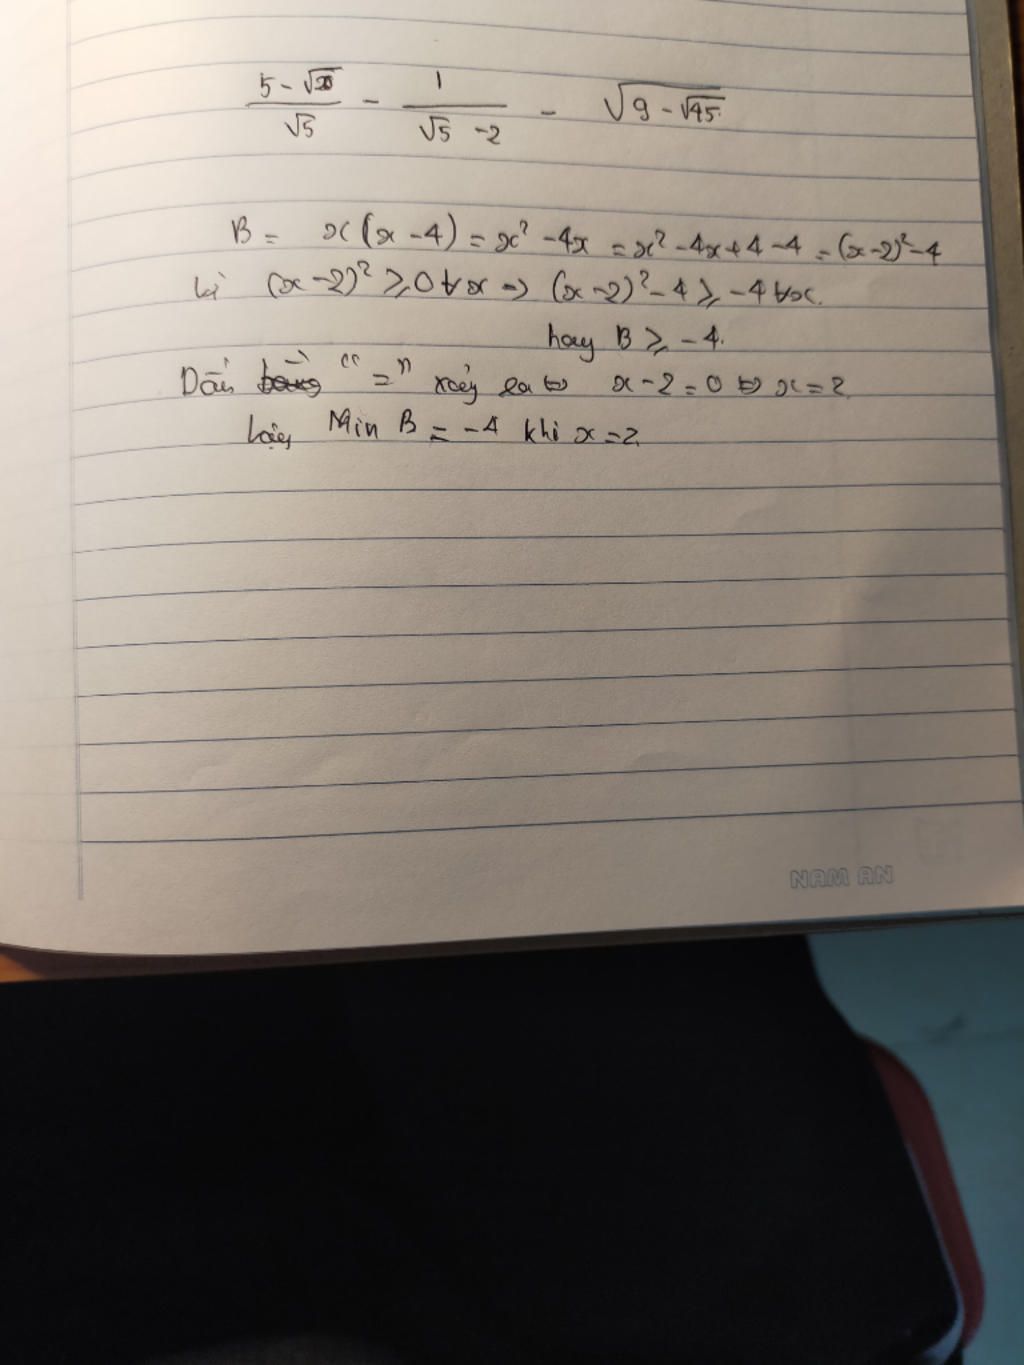 5 - √ / √5 - 1 / √5 - 2 - √9 - √45
B = x(x - 4) = x² - 4x = x² - 4x + 4 - 4 = (x - 2)² - 4
Vì (x - 2)² ≥ 0 ∀x ⇒ (x - 2)² - 4 ≥ -4 ∀x.
hay B ≥ -4.
Dấu "=" xảy ra ⇔ x - 2 = 0 ⇔ x = 2
Vậy Min B = -4 khi x = 2
NAM AN